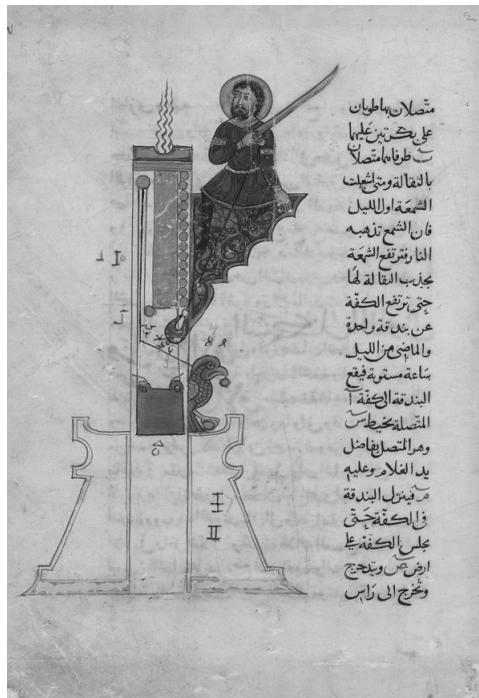 متصلان بها طويان
على بكرتين عليهما
طرفاهما متصلان
بالثقالة ومتى اشعلت
الشمعة اول الليل
فان الشمع تذهبه
النار فترتفع الشمعة
بجذب الثقالة لها
حتى ترتفع الكفة
عن بندقة واحدة
والماضى من الليل
ساعة مستوية فيقع
البندقة الى الكفة
المتصلة بخيط س
وهو المتصل بفاضل
يد الغلام وعليه
فينزل البندقة
فى الكفة حتى
يجلس الكفة على
ارض ص ويتدحرج
وتخرج الى راس